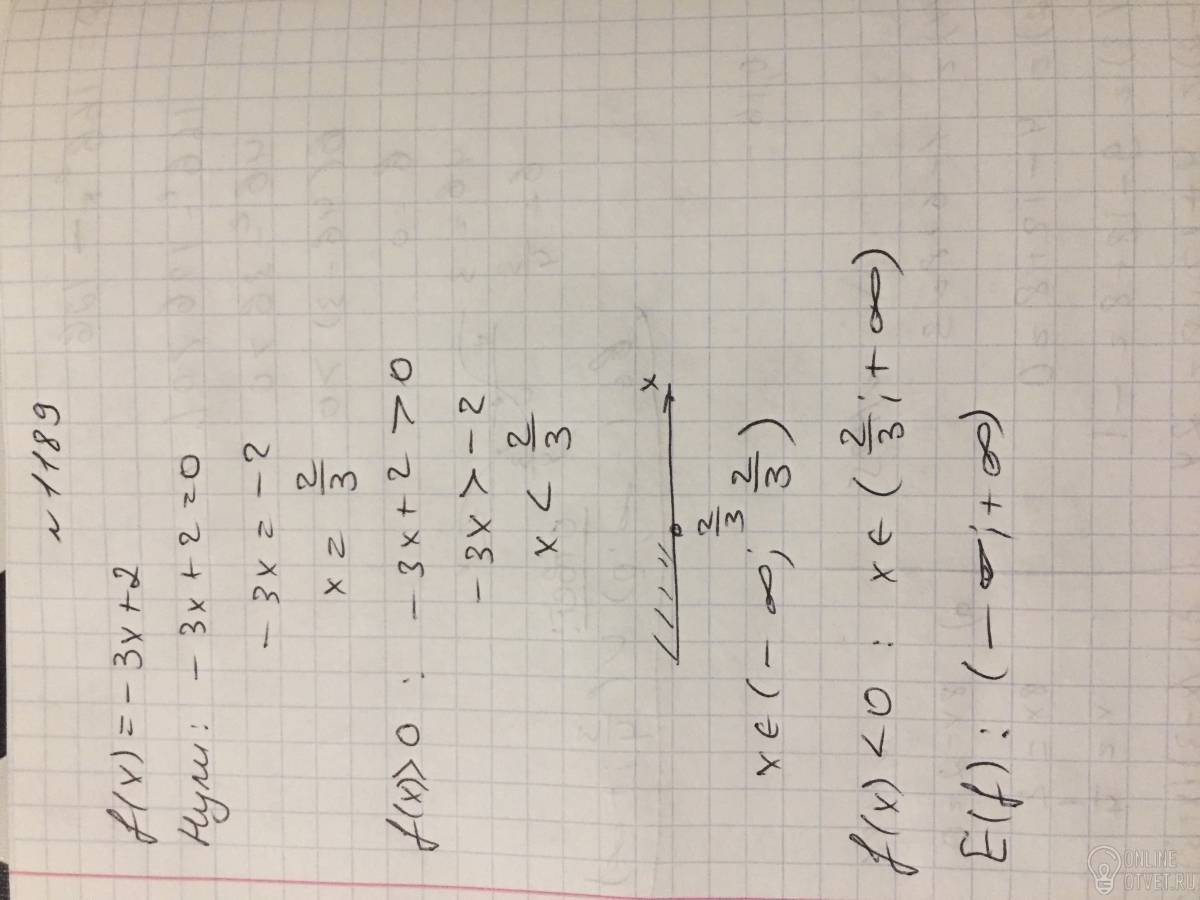 № 1189
f(x) = -3x+2
Нули: -3x+2=0
-3x = -2
x = 2/3
f(x)>0 : -3x+2 > 0
-3x > -2
x < 2/3
x
2/3
x ∈ (-∞; 2/3)
f(x) < 0 : x ∈ (2/3; +∞)
E(f): (-∞; +∞)
ONLINE
OTVET.RU